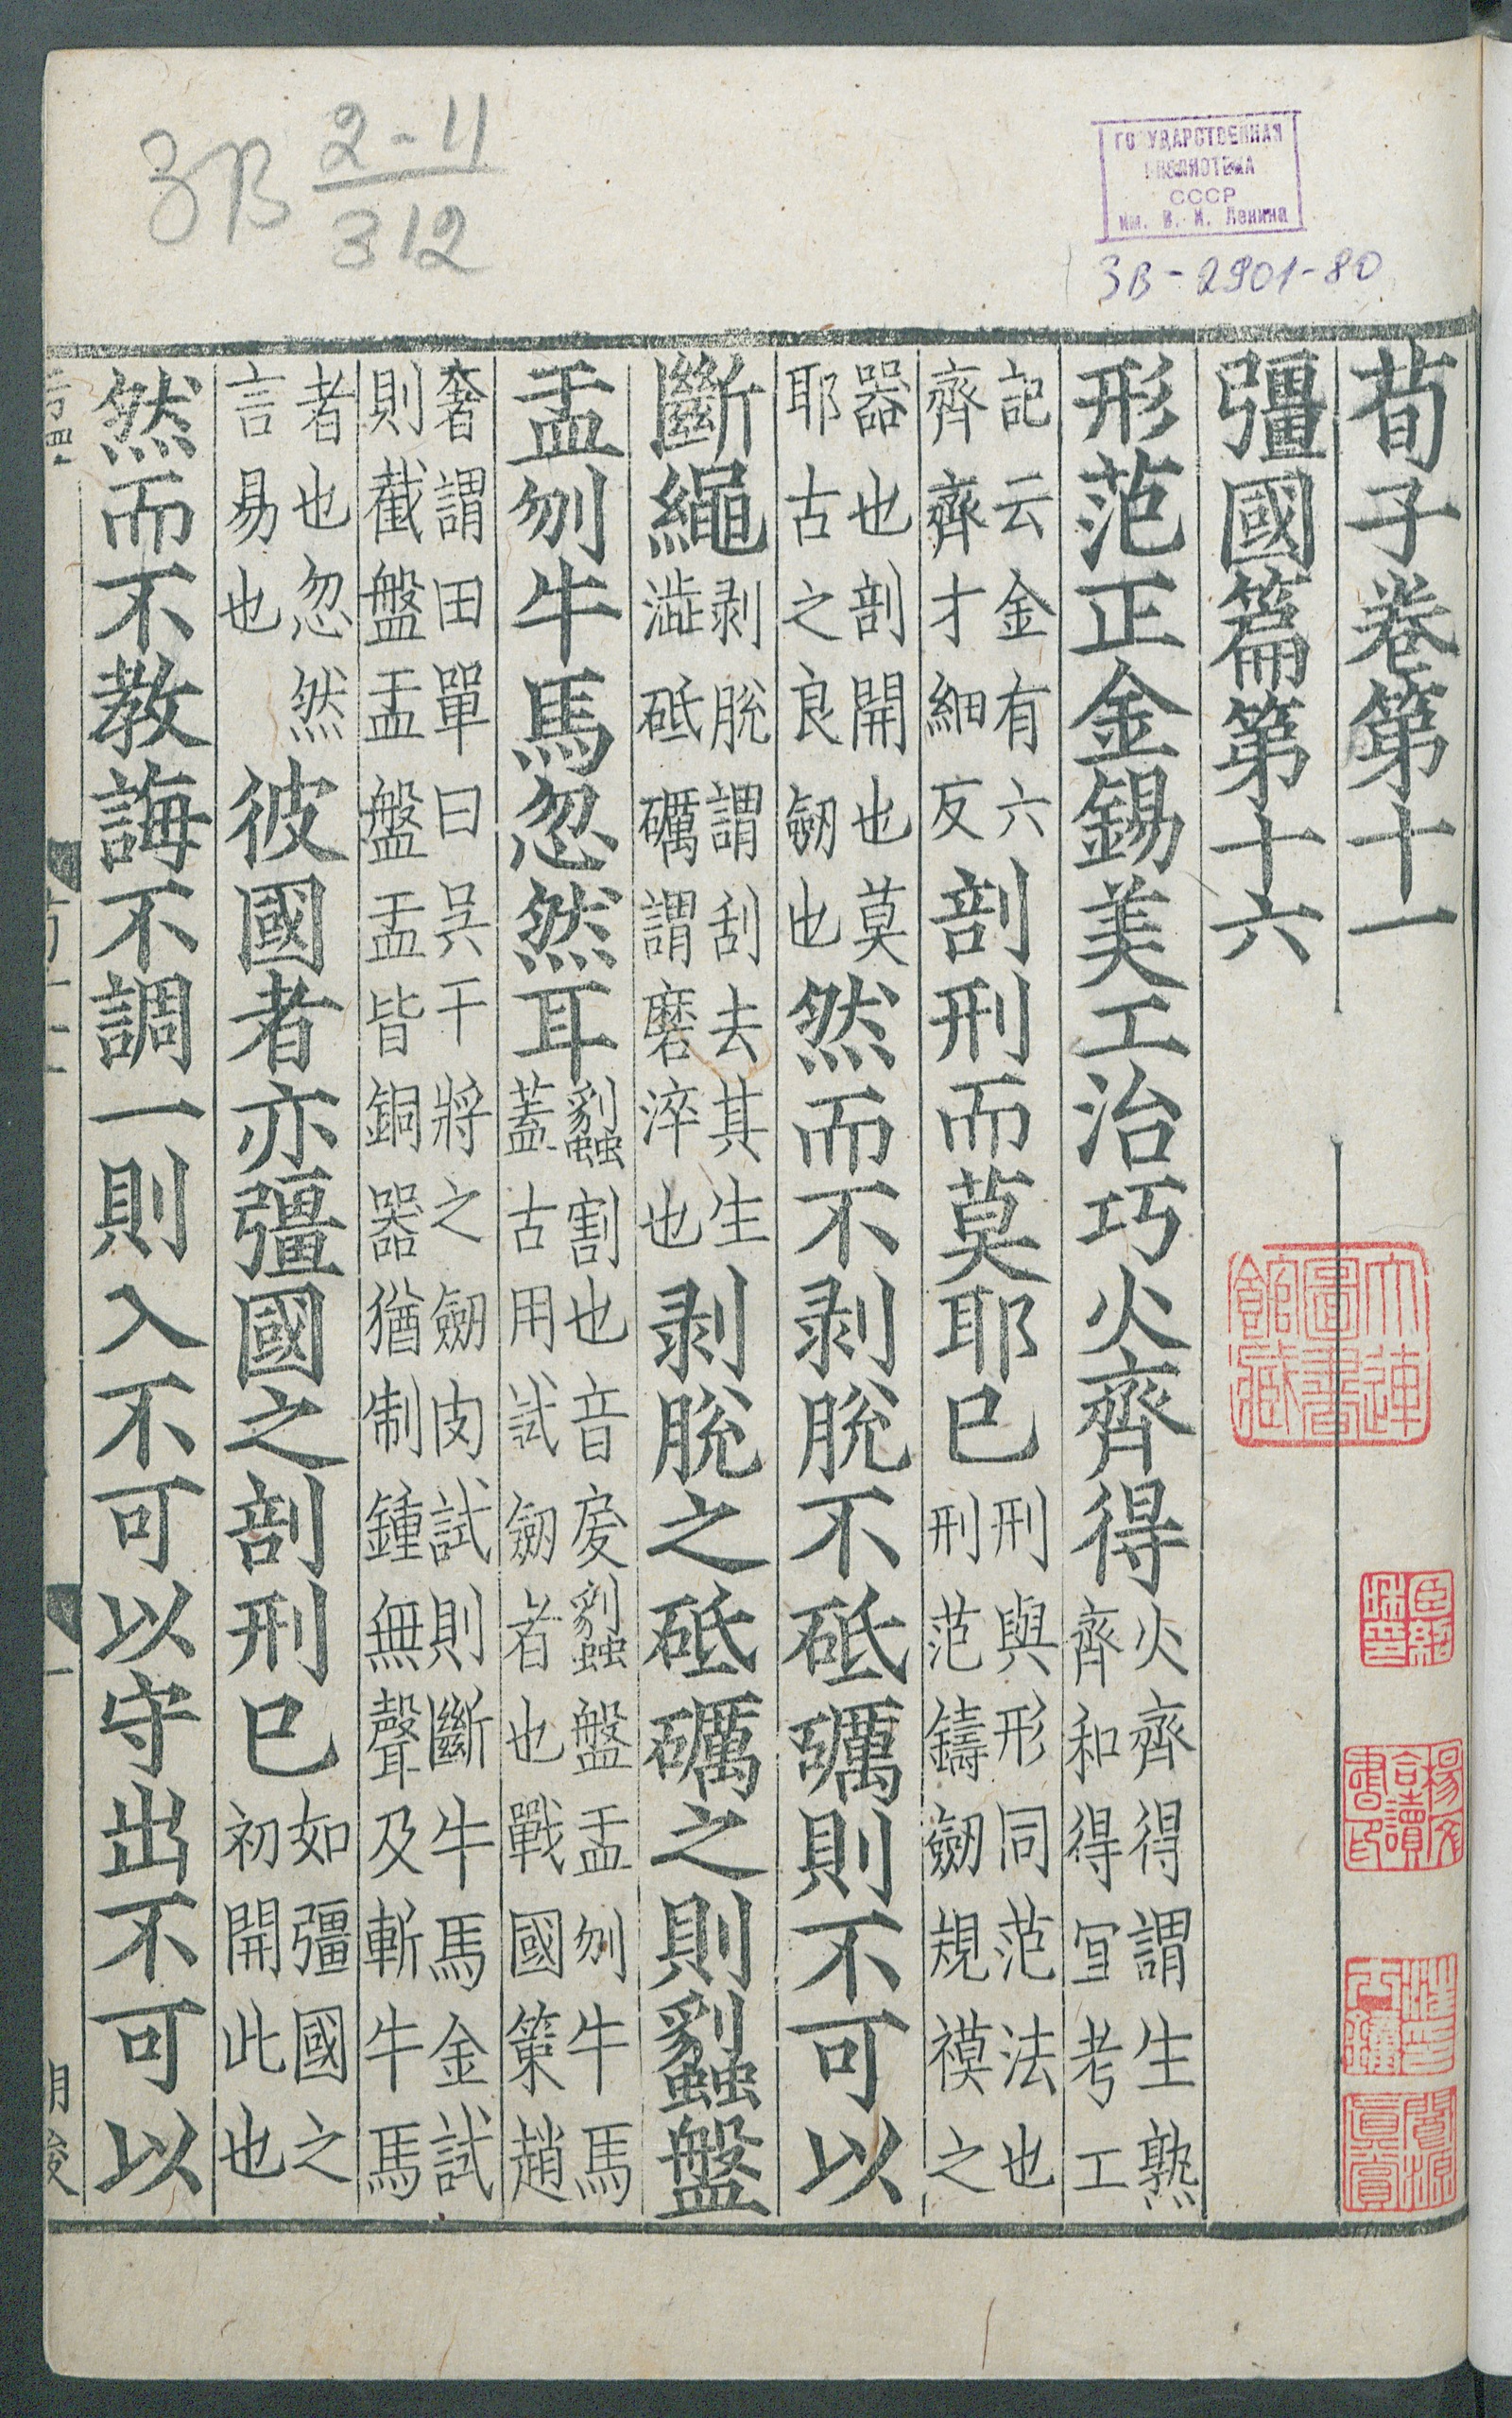 ЗВ 2-11/312
ГОСУДАРСТВЕННАЯ
БИБЛИОТЕКА
СССР
им. В. И. Ленина
ЗВ-2901-80
荀子卷第十一
彊國篇第十六
形范正金錫美工治巧火齊得火齊得謂生熟齊和得宜考工
記云金有六齊齊才細反剖刑而莫耶已刑與形同范法也刑范鑄劒規模之
器也剖開也莫耶古之良劒也然而不剥脫不砥礪則不可以
斷繩剥脫謂刮去其生澁砥礪謂磨淬也剥脫之砥礪之則劙盤
盂刎牛馬忽然耳劙割也音戾劙盤盂刎牛馬蓋古用試劒者也戰國策趙
奢謂田單曰吳干將之劒肉試則斷牛馬金試則截盤盂盤盂皆銅器猶制鍾無聲及斬牛馬
者也忽然言易也彼國者亦彊國之剖刑已如彊國之初開此也
然而不教誨不調一則入不可以守出不可以
大連圖書館藏
楊彥合讀書印
汪印士鐘
閬源眞賞